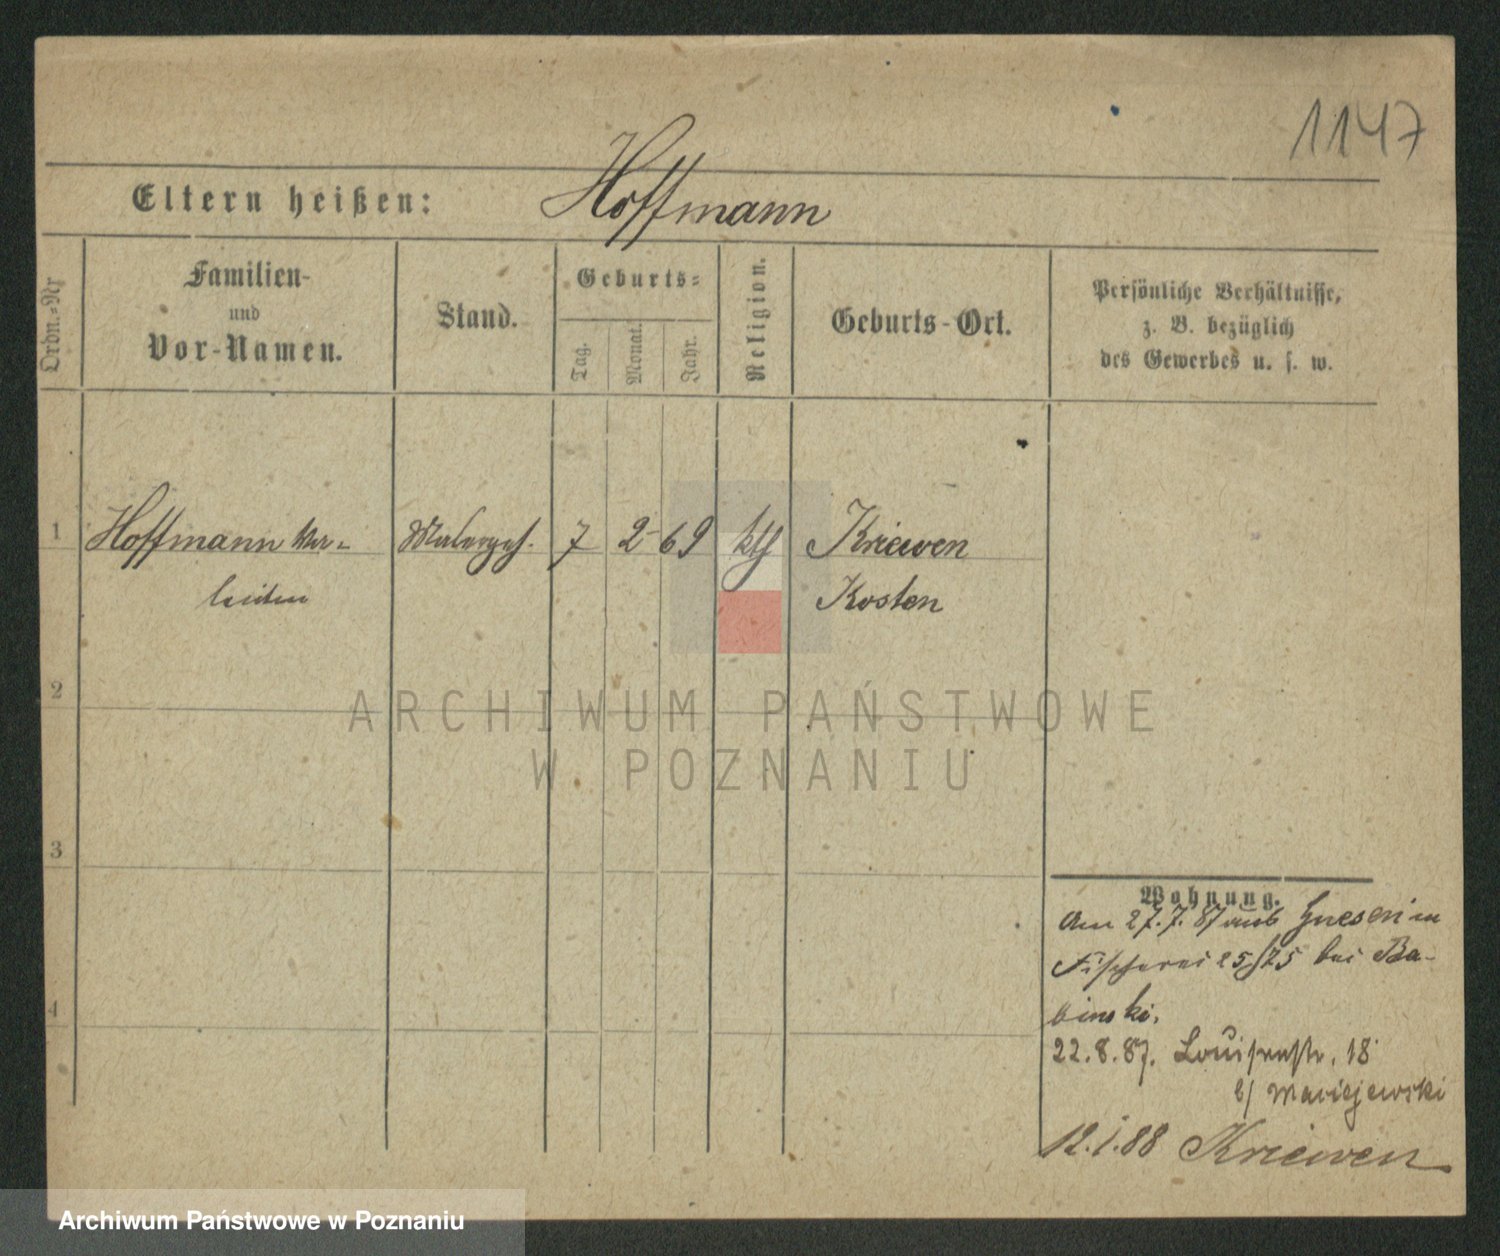 1147
Eltern heißen: Hoffmann
Ordn.-Nr
Familien-
und
Vor-Namen.
Stand.
Geburts-
Tag.
Monat.
Jahr.
Religion.
Geburts-Ort.
Persönliche Verhältnisse,
z. B. bezüglich
des Gewerbes u. s. w.
1 Hoffmann Malergeh. 7 2 69 kth Kriewen
Kosten
2
3
4
Wohnung.
Am 27.7.87 aus Gnesen in
Fischerei 25/25 bei Ba-
binski.
22.8.87. Louisenstr. 18
b/ Maciejewski
12.1.88 Kriewen
ARCHIWUM PAŃSTWOWE
W POZNANIU
Archiwum Państwowe w Poznaniu